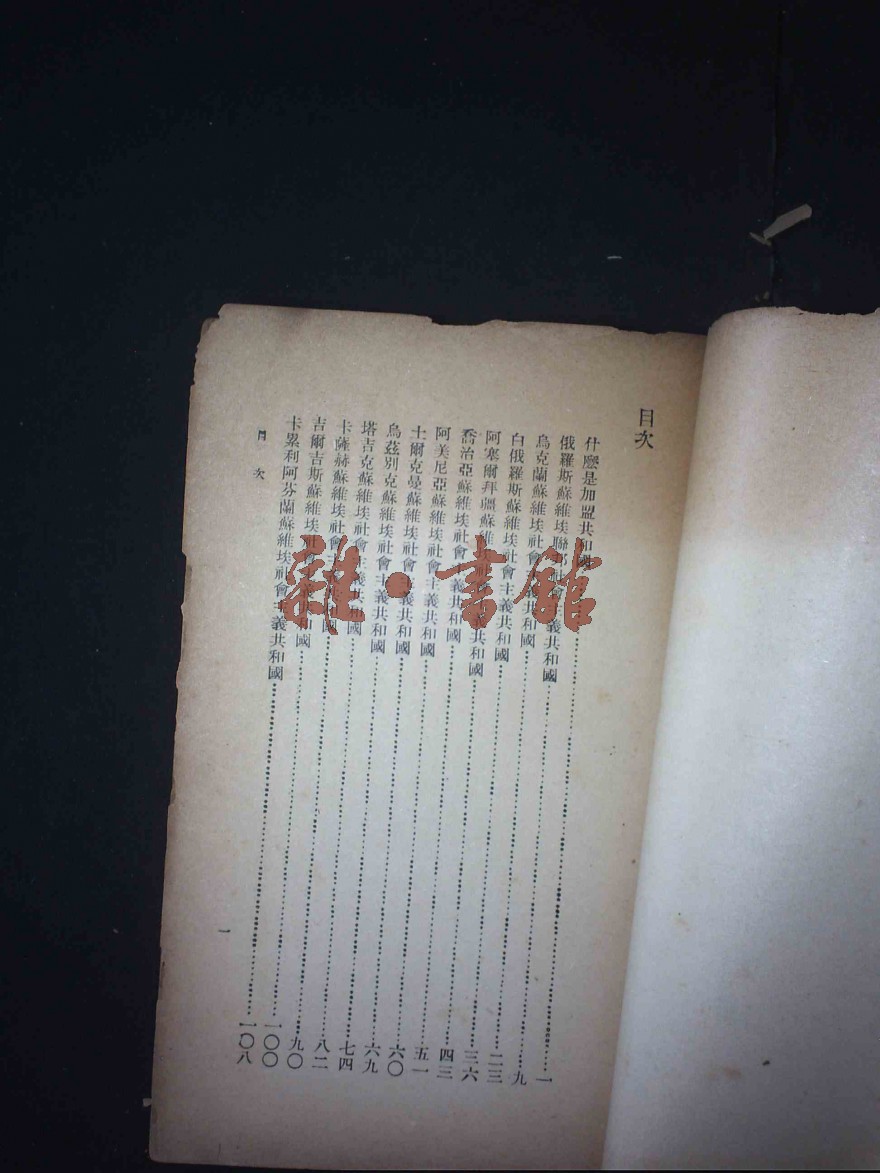 目次
什麼是加盟共和國……一
俄羅斯蘇維埃聯邦社會主義共和國……九
烏克蘭蘇維埃社會主義共和國……二三
白俄羅斯蘇維埃社會主義共和國……三六
阿塞爾拜疆蘇維埃社會主義共和國……四三
喬治亞蘇維埃社會主義共和國……五一
阿美尼亞蘇維埃社會主義共和國……六〇
土爾克曼蘇維埃社會主義共和國……六九
烏茲別克蘇維埃社會主義共和國……七四
塔吉克蘇維埃社會主義共和國……八二
卡薩赫蘇維埃社會主義共和國……九〇
吉爾吉斯蘇維埃社會主義共和國……一〇〇
卡累利阿芬蘭蘇維埃社會主義共和國……一〇八
目次
一
雜·書館